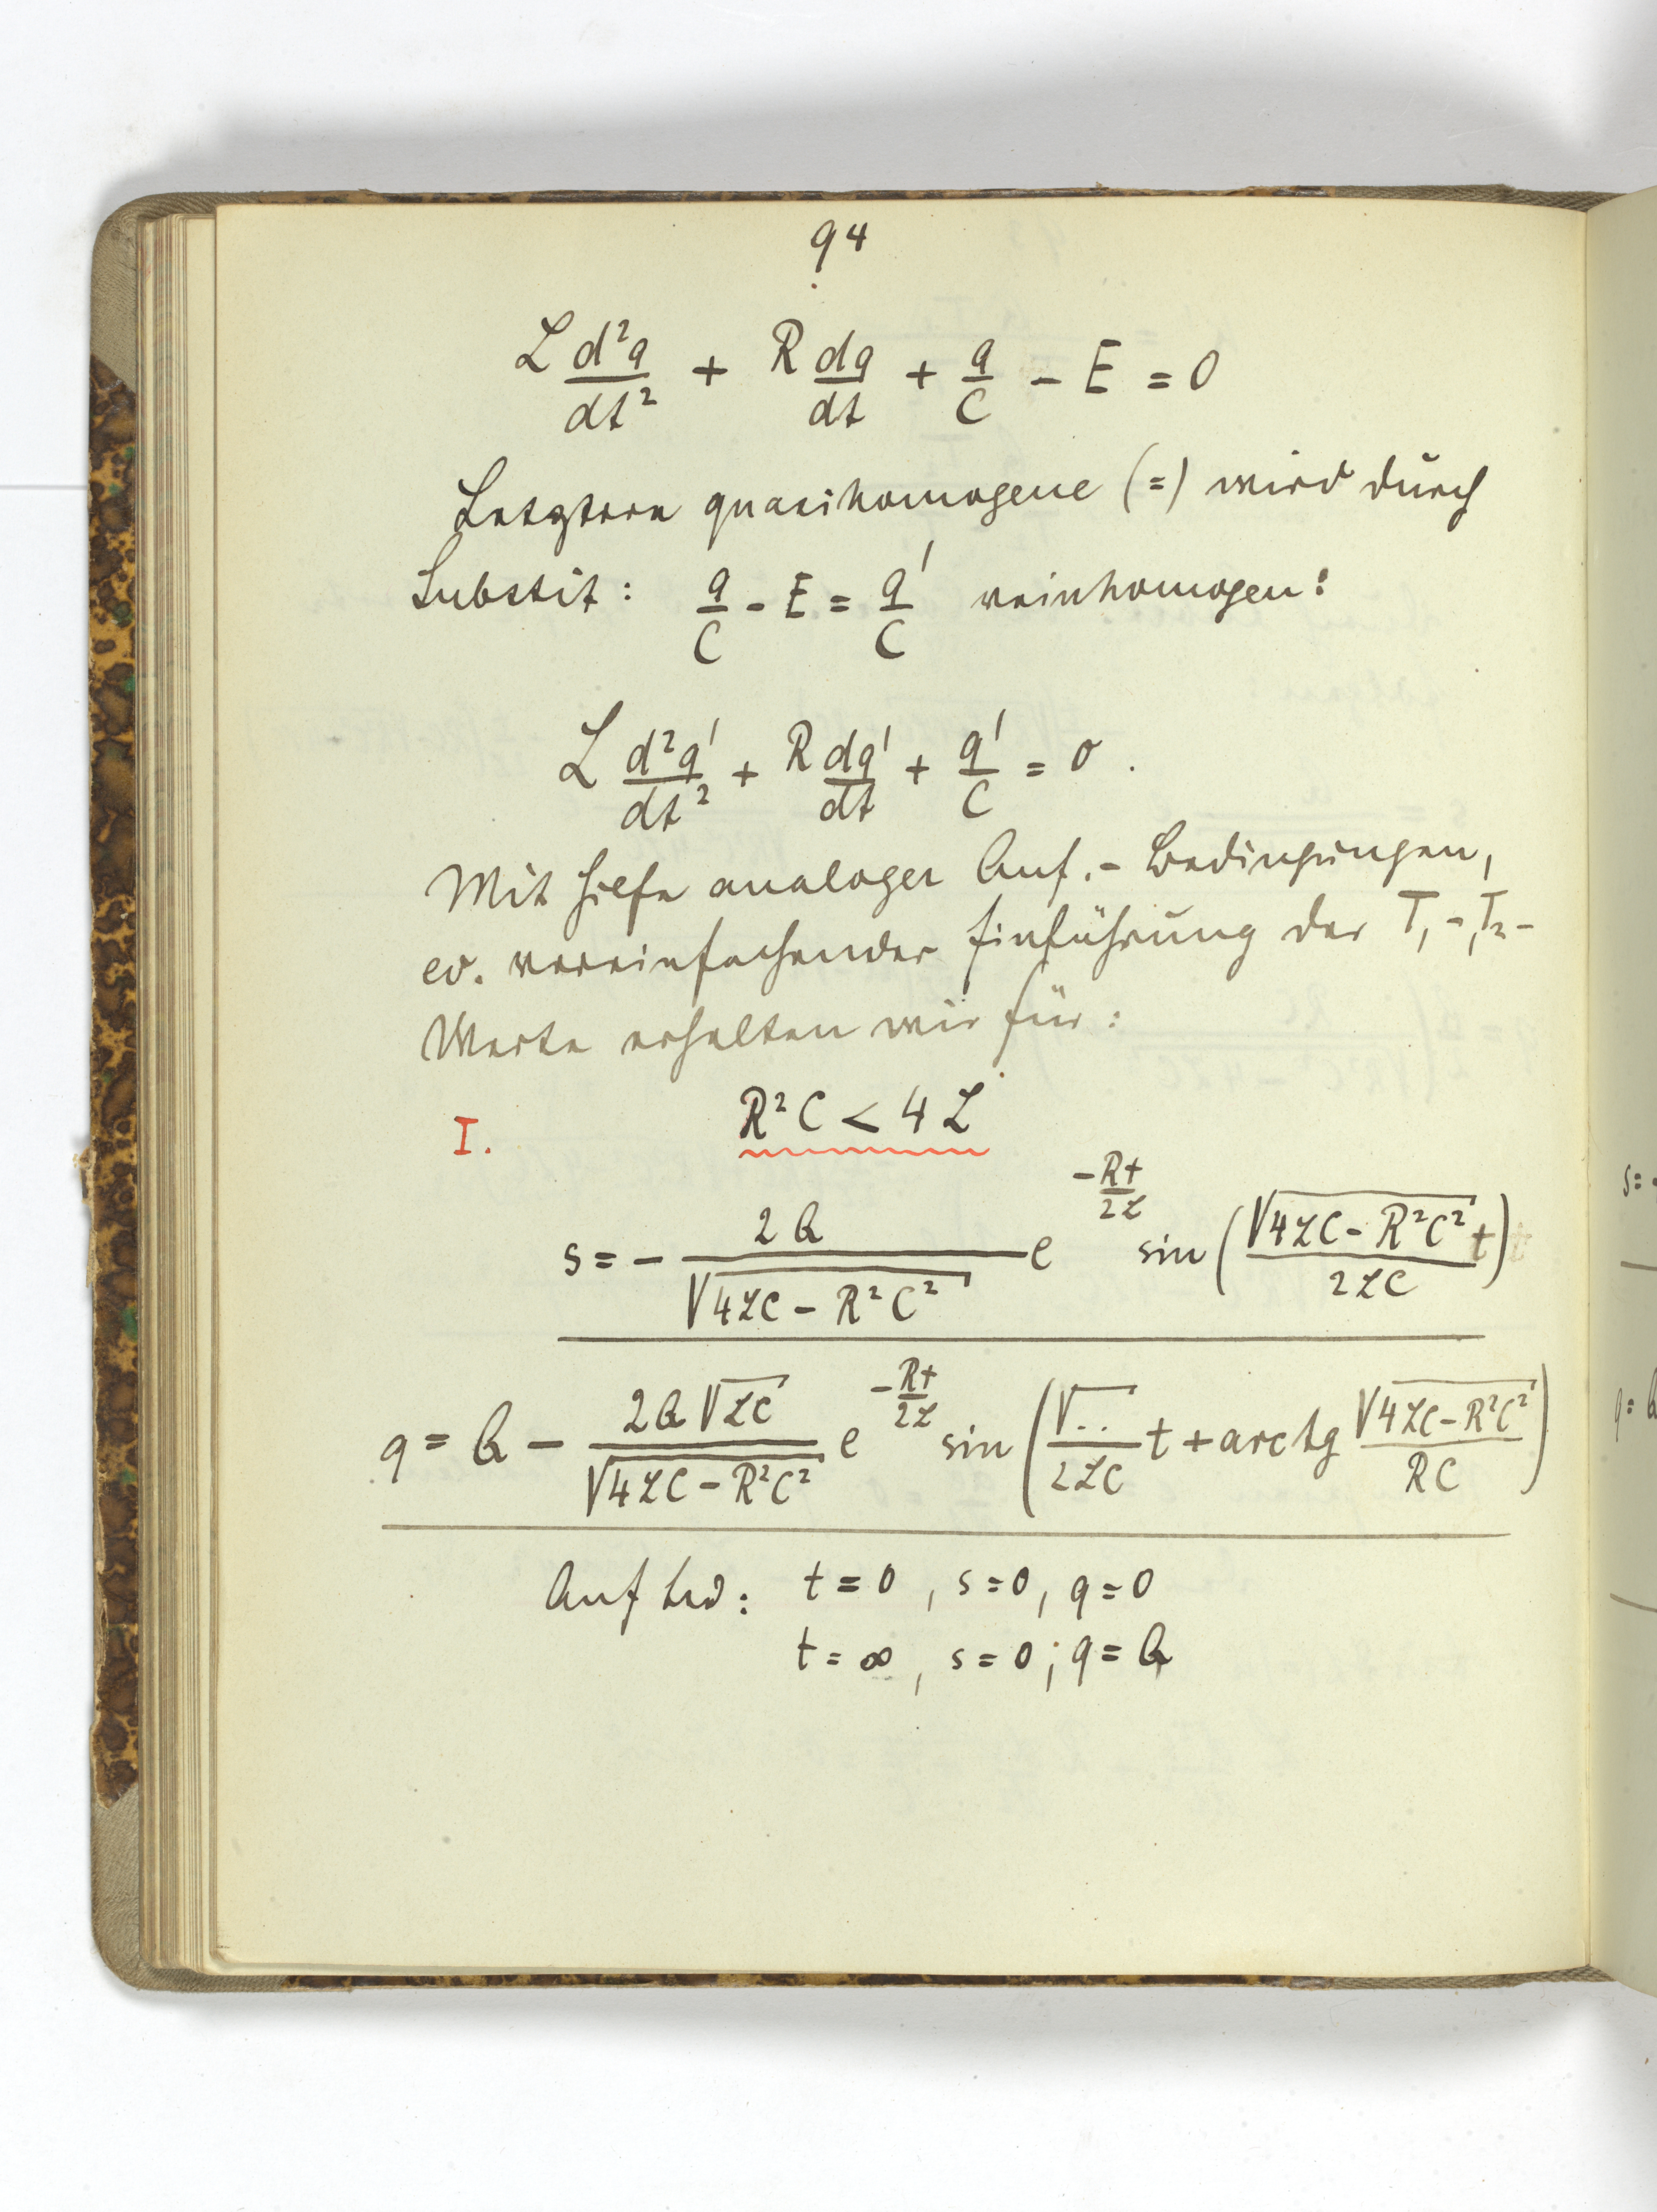 94
L d²q/dt² + R dq/dt + q/C - E = 0
Letztere quasihomogene (=) wird durch
Substit: q/C - E = q'/C reinhomogen:
L d²q'/dt² + R dq'/dt + q'/C = 0.
Mit Hilfe analoger Anf.-Bedingungen,
ev. vereinfachender Einführung der T₁-, T₂-
Werte erhalten wir für:
I. R²C < 4L
s = - 2Q/√(4LC - R²C²) e^(-Rt/2L) sin (√(4LC - R²C²)/2LC t)
q = Q - 2Q√LC/√(4LC - R²C²) e^(-Rt/2L) sin (√../2LC t + arctg √(4LC - R²C²)/RC)
Anf bed: t = 0, s = 0, q = 0
t = ∞, s = 0; q = Q